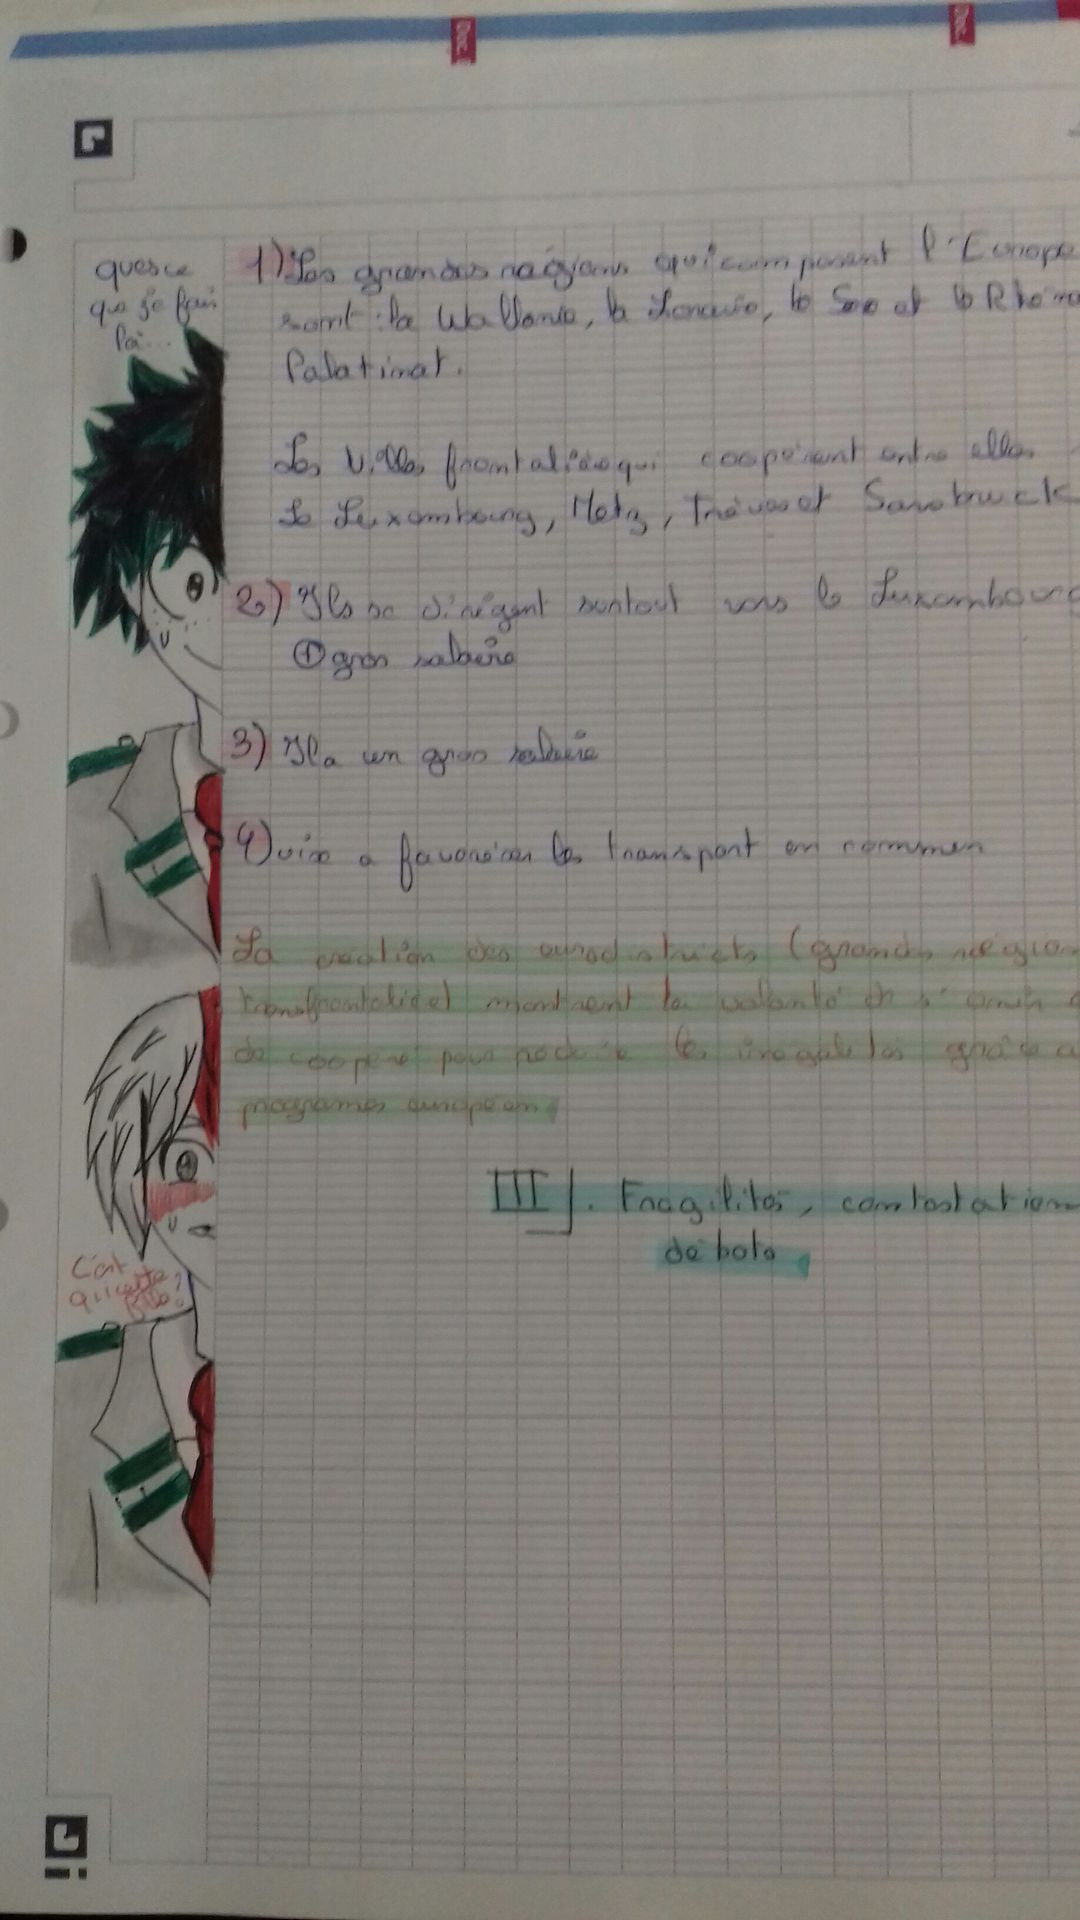 Doc.
Doc.
quesce
que je fais
là...
1) Les grandes régions qui composent l'Europe
sont : la Wallonie, la Loraine, le Sar et le Rhéna
Palatinat.
Les Villes frontalière qui coopèrent entre elles
Le Luxembourg, Metz, Trèves et Sarrebruck
2) Ils se dirigent surtout vers le Luxembourg
⊕ gros salaire
3) Il a un gros salaire
4) vise a favoriser les transport en commun
La création des eurodistricts (grandes région
transfrontalière) montrent la volonté de s'
de coopéré pour réduire les inégalités grâce a
programes européen
III]. Fragilités, contestation
débats
C'est
qui cette
Bille?